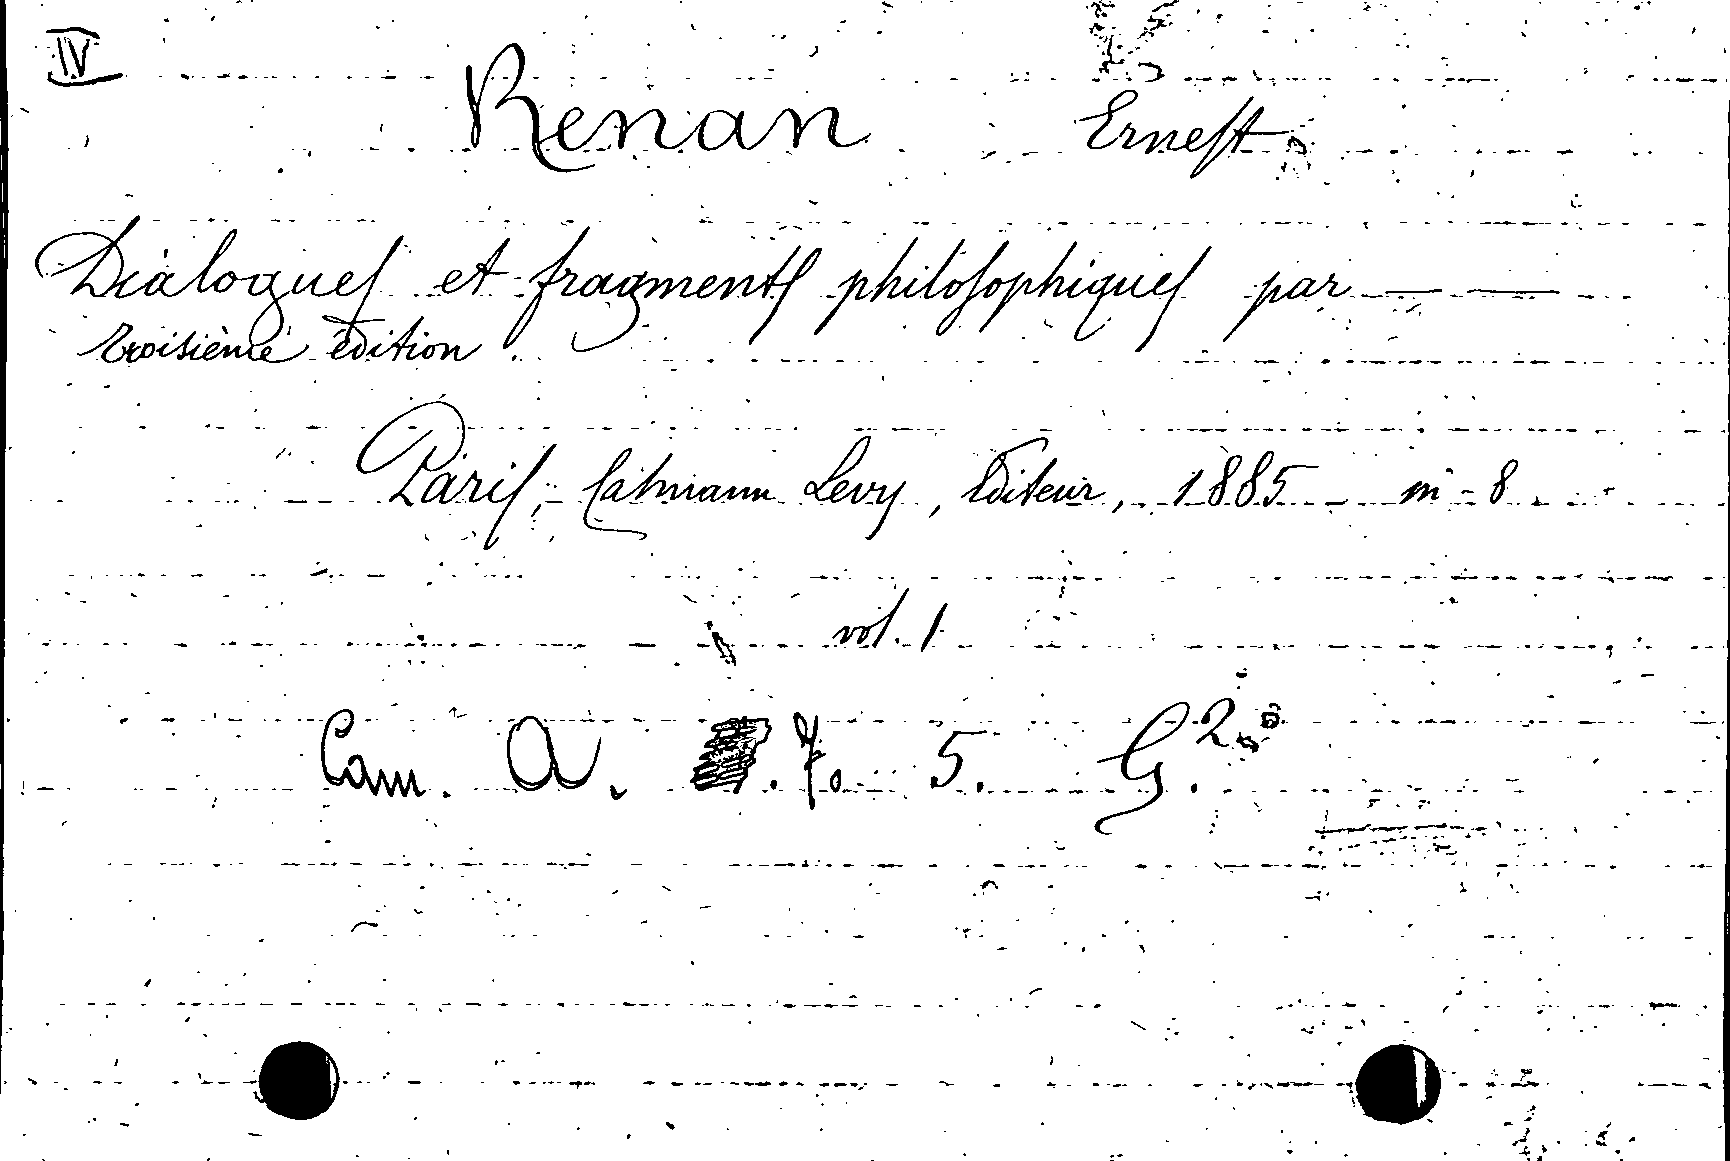 IV
Renan Ernest
Dialogues et fragments philosophiques par — —
troisième édition.
Paris, Calmann Levy, Éditeur, 1885 - in - 8
vol. 1
Cam. A. 7. 5. G.